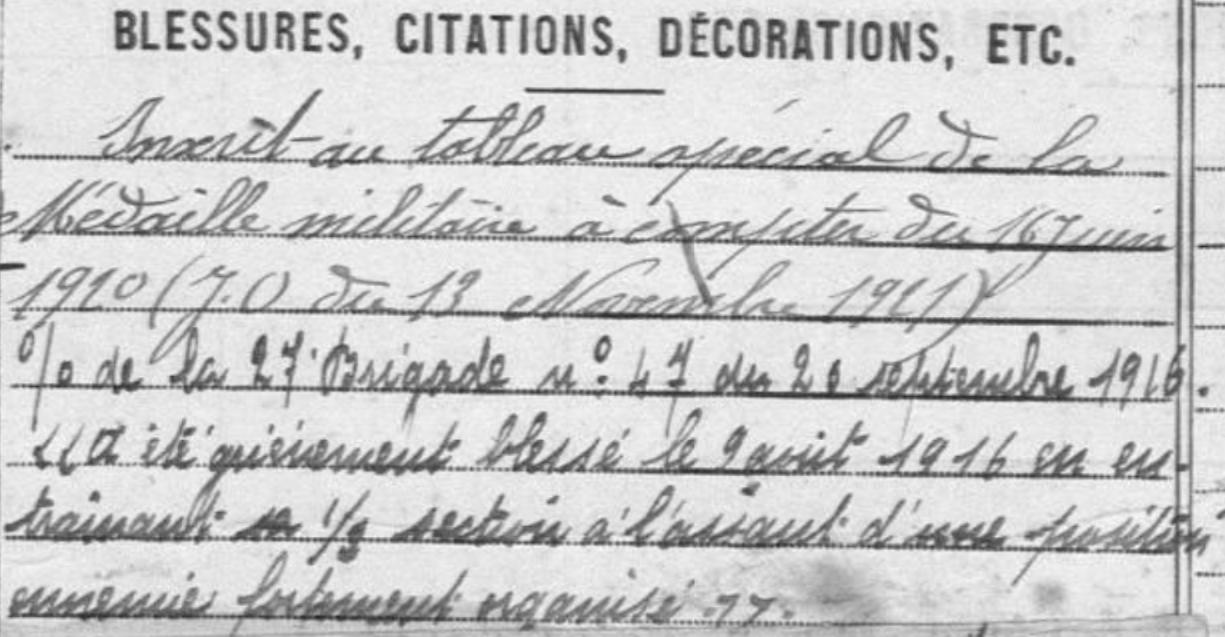 BLESSURES, CITATIONS, DÉCORATIONS, ETC.
Inscrit au tableau spécial de la
Médaille militaire à compter du 16 Juin
1920 (J.O du 13 Novembre 1921)
O/ de la 27e Brigade n° 47 du 20 septembre 1916.
"A été grièvement blessé le 9 août 1916 en en-
trainant sa 1/2 section à l'assaut d'une position
ennemie fortement organisé".